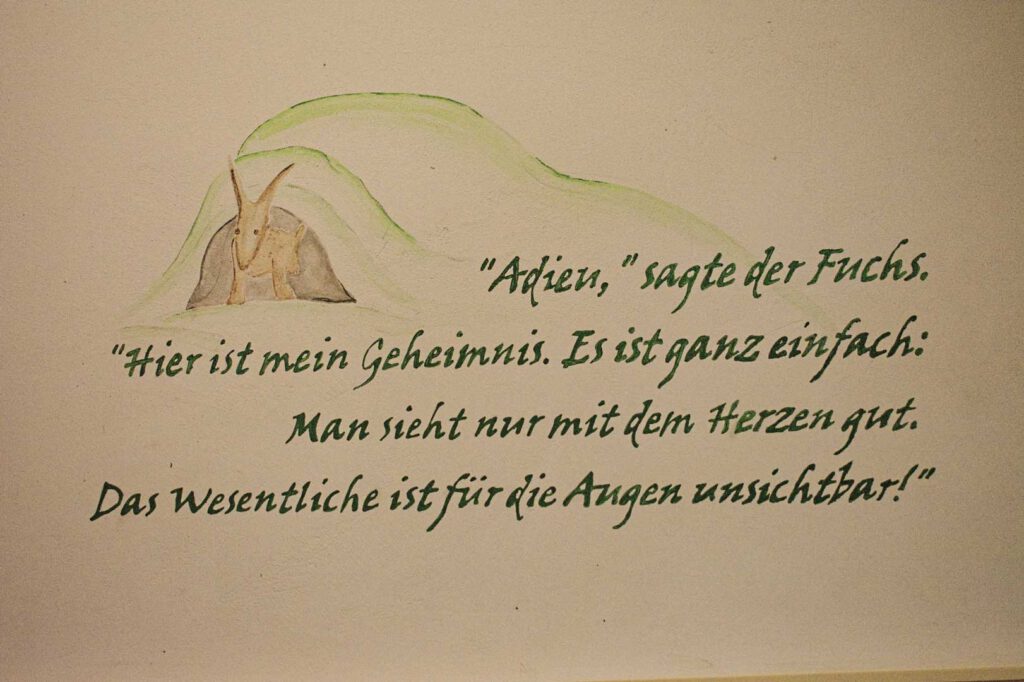 "Adieu," sagte der Fuchs.
"Hier ist mein Geheimnis. Es ist ganz einfach:
Man sieht nur mit dem Herzen gut.
Das Wesentliche ist für die Augen unsichtbar!"